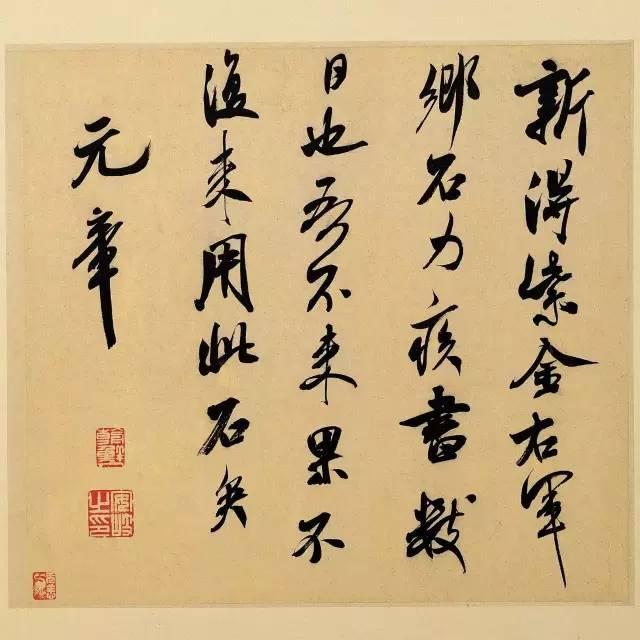 新得紫金右軍
鄉石力疾書數
日也吾不來果不
復來用此石矣
元章